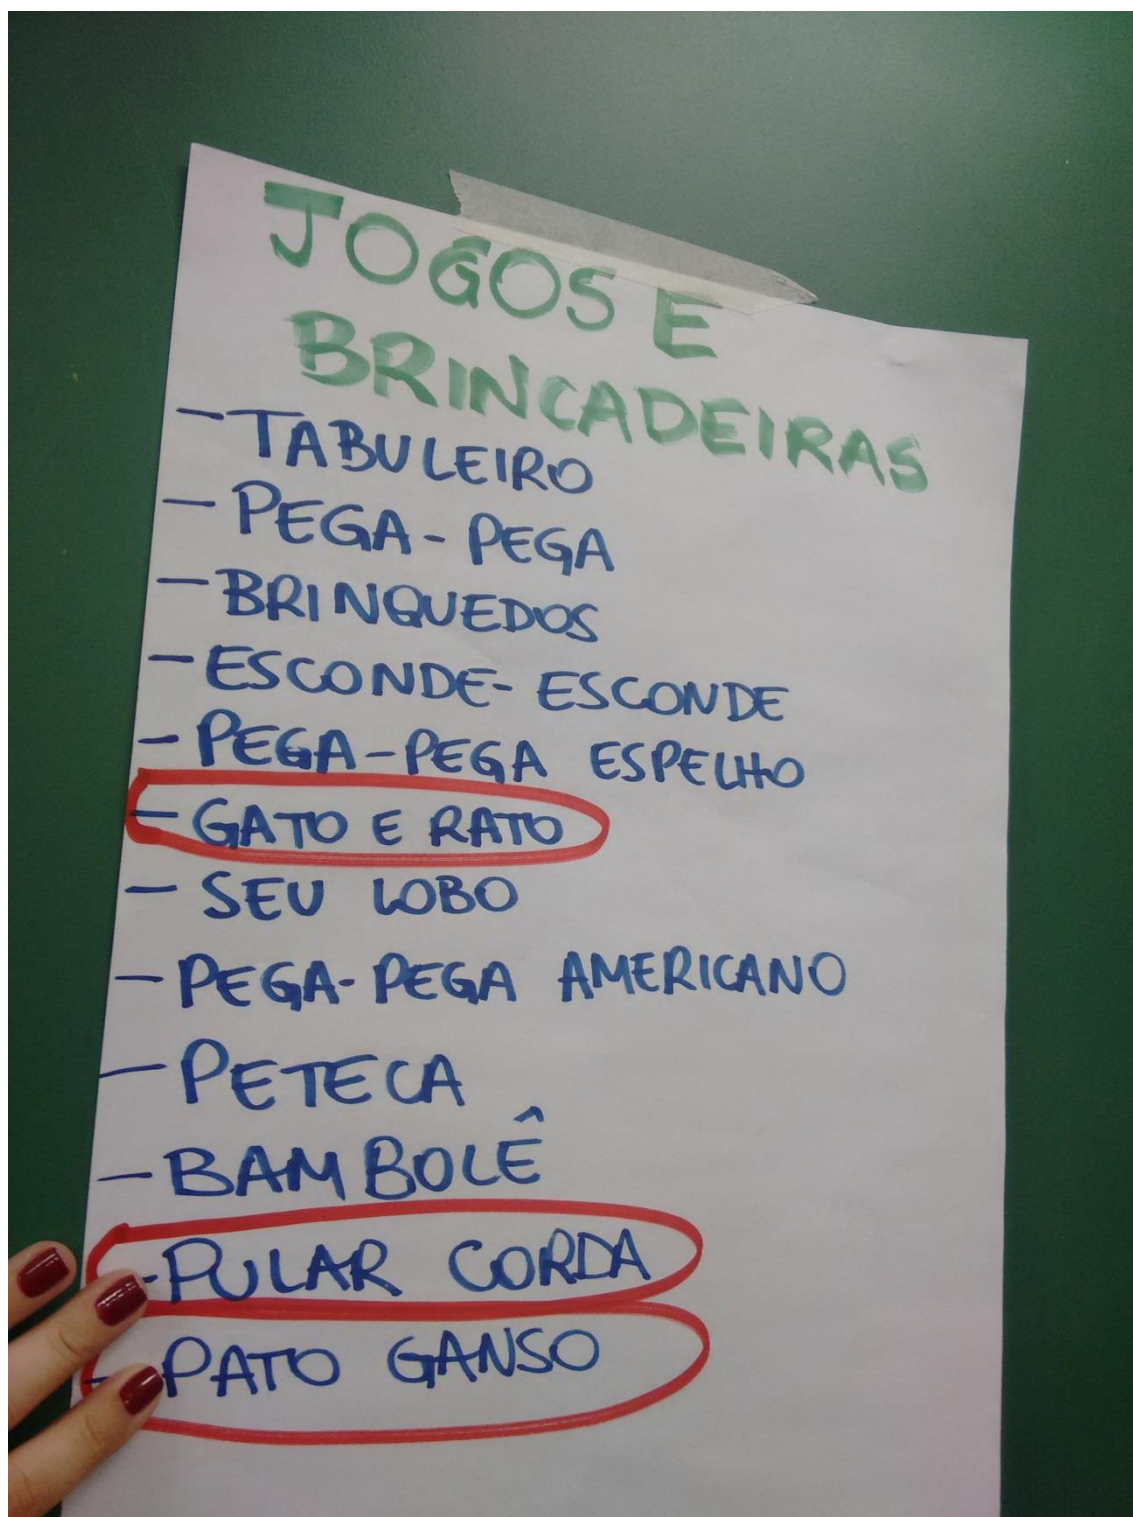 JOGOS E
BRINCADEIRAS
- TABULEIRO
- PEGA-PEGA
- BRINQUEDOS
- ESCONDE-ESCONDE
- PEGA-PEGA ESPELHO
- GATO E RATO
- SEU LOBO
- PEGA-PEGA AMERICANO
- PETECA
- BAMBOLÊ
- PULAR CORDA
- PATO GANSO